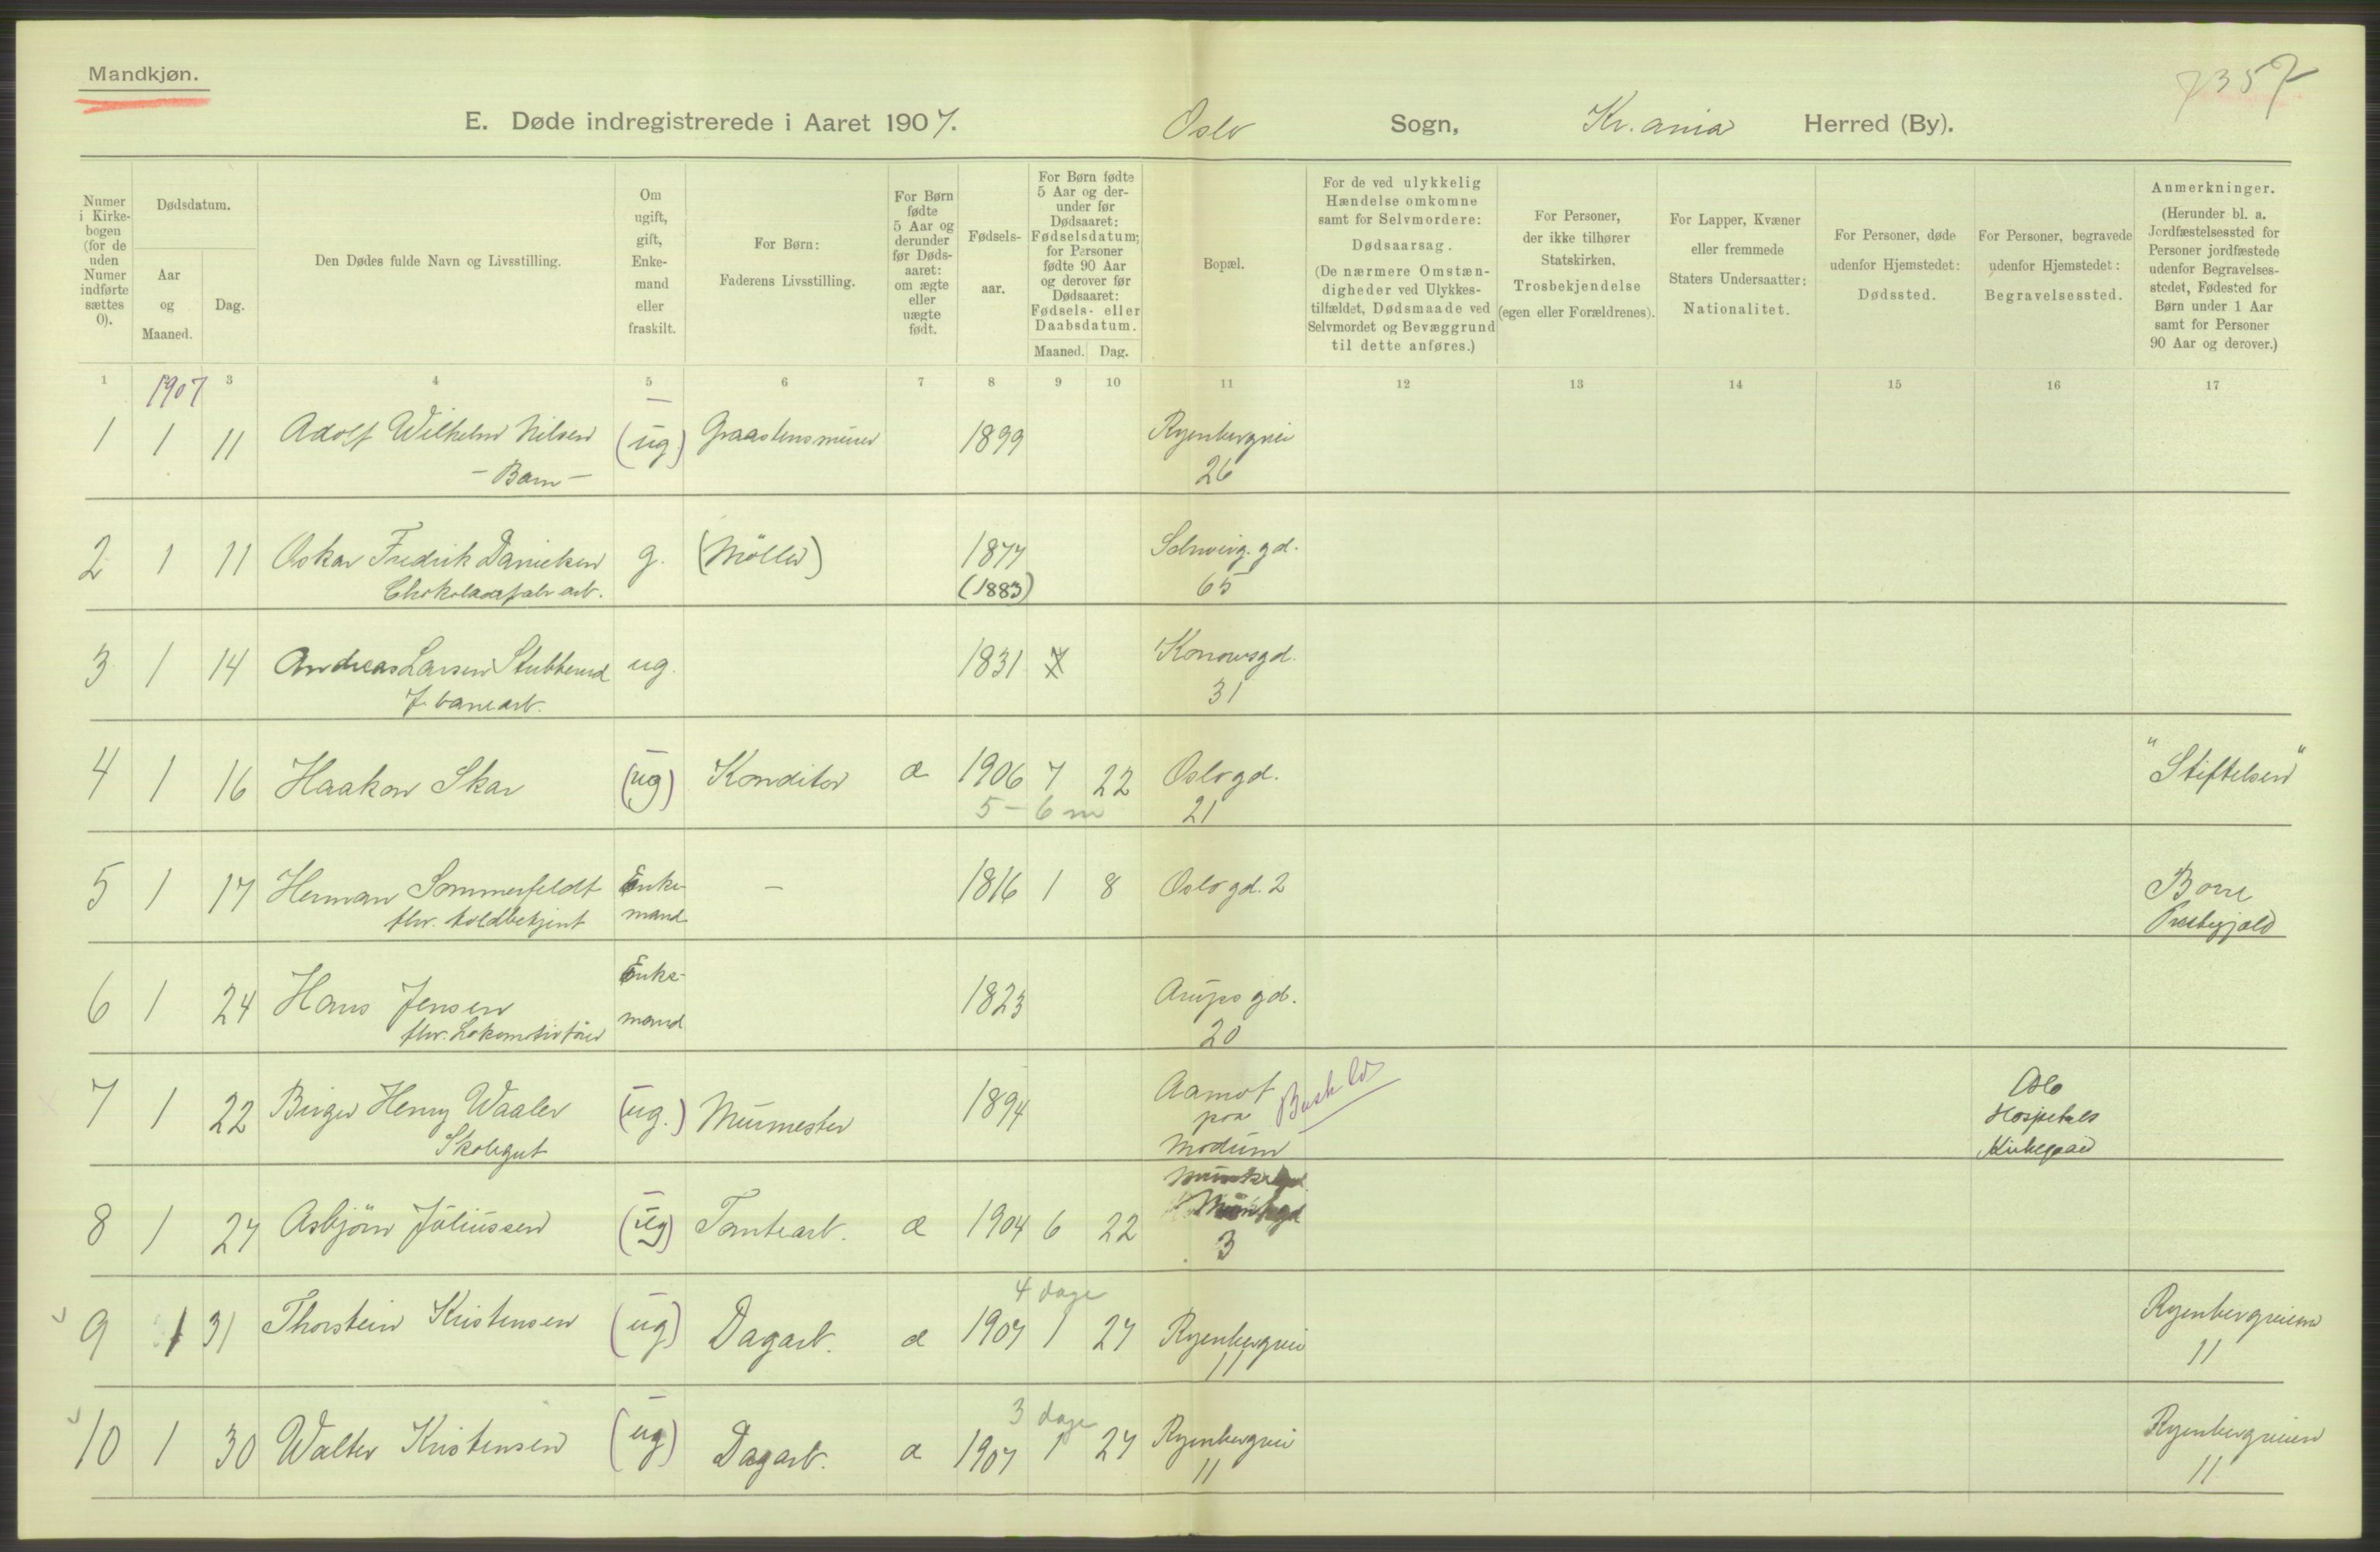 Mandkjøn.
7357
E. Døde indregistrerede i Aaret 1907. Oslo Sogn, Kr.ania Herred (By).
Numer i Kirkebogen (for de uden Numer indførte sættes 0).
Dødsdatum.
Aar og Maaned.
Dag.
Den Dødes fulde Navn og Livsstilling.
Om ugift, gift, Enkemand eller fraskilt.
For Børn: Faderens Livsstilling.
For Børn fødte 5 Aar og derunder før Dødsaaret: om ægte eller uægte født.
Fødselsaar.
For Børn fødte 5 Aar og derunder før Dødsaaret: Fødselsdatum; for Personer fødte 90 Aar og derover før Dødsaaret: Fødsels- eller Daabsdatum.
Maaned. Dag.
Bopæl.
For de ved ulykkelig Hændelse omkomne samt for Selvmordere: Dødsaarsag. (De nærmere Omstændigheder ved Ulykkestilfældet, Dødsmaade ved Selvmordet og Bevæggrund til dette anføres.)
For Personer, der ikke tilhører Statskirken, Trosbekjendelse (egen eller Forældrenes).
For Lapper, Kvæner eller fremmede Staters Undersaatter: Nationalitet.
For Personer, døde udenfor Hjemstedet: Dødssted.
For Personer, begravede udenfor Hjemstedet: Begravelsessted.
Anmerkninger. (Herunder bl. a. Jordfæstelsessted for Personer jordfæstede udenfor Begravelsesstedet, Fødested for Børn under 1 Aar samt for Personer 90 Aar og derover.)
1 3 4 5 6 7 8 9 10 11 12 13 14 15 16 17
1907
1 1 11 Adolf Wilhelm Nilsen (ug) Graastensmurer 1899 Ryenbergvei
- Barn - 26
2 1 11 Oskar Fredrik Danielsen g. (Möller) 1877 Schweig.gd.
Chokoladefabr arb. (1883) 65
3 1 14 Andreas Larsen Stubberud ug. 1831 Konowsgd.
J.banearb. 31
4 1 16 Haakon Skar (ug) Konditor æ 1906 7 22 Oslogd. "Stiftelsen"
5 - 6 m 21
5 1 17 Herman Sommerfeldt Enke- - 1816 1 8 Oslogd. 2 Borre
fhv. toldbetjent mand Præstegjæld
6 1 24 Hans Jensen Enke- 1823 Arupsgd.
fhv. Lokomotivfører mand 20
7 1 22 Birger Henry Waaler (ug.) Murmester 1894 Aamot Buskd Oslo
Skolegut paa Hospitals
Modum Kirkegaard
8 1 27 Asbjörn Juliussen (ug) Tomtearb. æ 1904 6 22 Munkegd
3
4 dage
9 1 31 Thorstein Kristensen (ug) Dagarb. æ 1907 1 27 Ryenbergvei Ryenbergveien
11 11
3 dage
10 1 30 Walter Kristensen (ug) Dagarb. æ 1907 1 27 Ryenbergvei Ryenbergveien
11 11